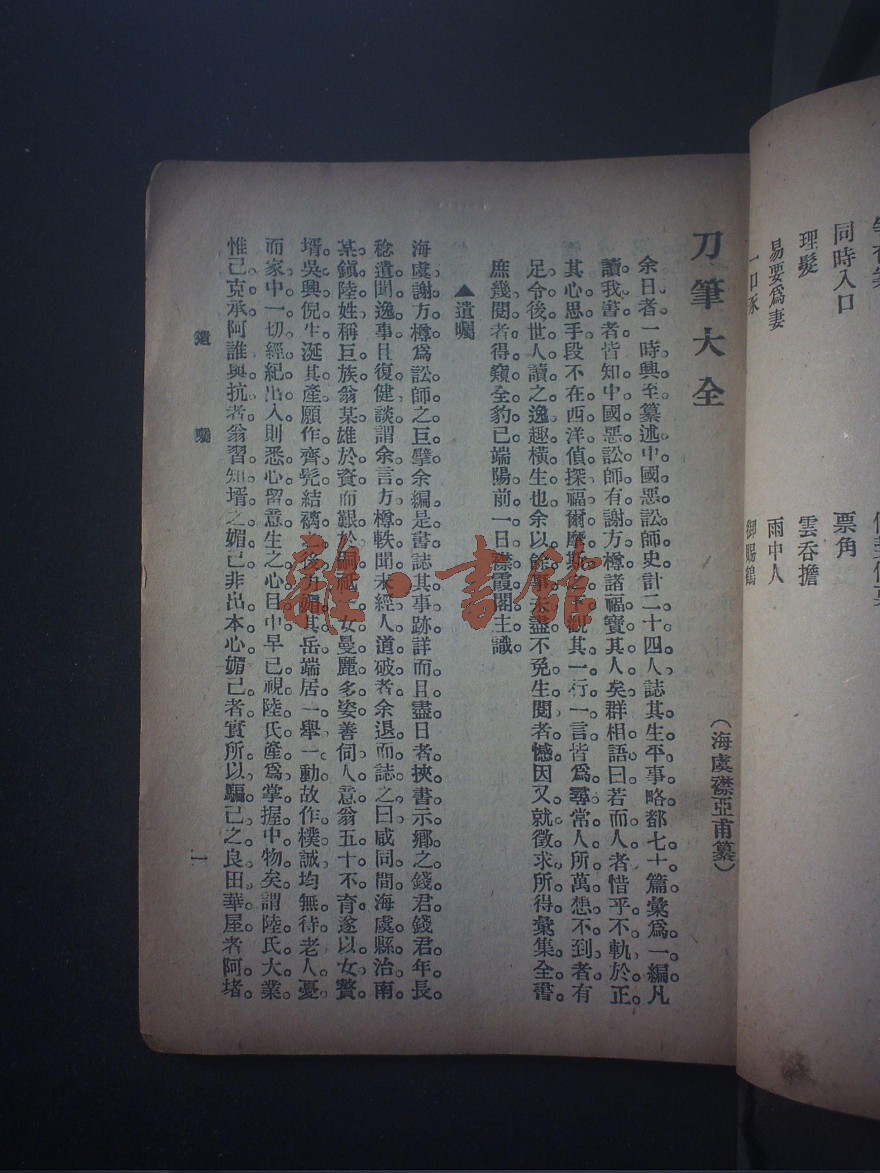 同時入口
票角
理髮
雲吞擔
易妾爲妻
雨中人
御賜鶴
刀筆大全
（海虞襟亞甫纂）
余日者一時興至纂述中國惡訟師史計二十四人誌其生平事略都七十篇彙爲一編凡
讀我書者皆知中國惡訟師有謝方樽諸福寶其人矣群相語曰若而人者惜乎不軌於正
其心思手段不在西洋偵探福爾摩斯之下觀其一行一言皆爲尋常人所萬想不到者有
足令後世人讀之逸趣橫生也余以餘事未盡不免生閱者憾因又就徵求所得彙集全書
庶幾閱者得窺全豹已端陽前一日襟霞閣主識
▲遺囑
海虞謝方樽爲訟師之巨擘余編是書誌其事跡詳而且盡日者挾書示鄉之錢君錢君年長
稔遺聞逸事且復健談謂余言方樽軼聞未經人道破者余退而誌之曰咸同間海虞縣治南
某鎮陸姓稱巨族翁某雄於資而艱於嗣祗一女曼麗多姿善伺人意翁五十不育遂以女贅
壻吳興倪生涎其產願作齊髡結褵之後力媚其岳端居一舉一動故作樸誠均無待老人憂
而家中一切經紀出入則悉心留意生之心目中早已視陸氏產爲掌握中物矣謂陸氏大業
惟己克承阿誰與抗者翁習知壻之媚己非出本心媚己者實所以騙己之良田華屋者阿堵
遺囑
一
雜·書館